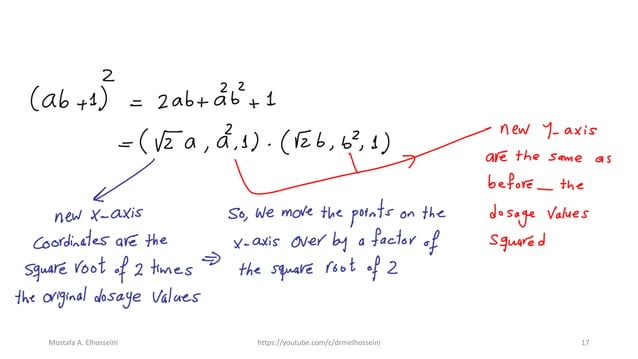 (ab+1)² = 2ab + a²b² + 1
= (√2 a, a², 1) · (√2 b, b², 1)
new x-axis
Coordinates are the
square root of 2 times
the original dosage values
⇒
So, we move the points on the
x-axis over by a factor of
the square root of 2
new y-axis
are the same as
before _ the
dosage values
squared
Mostafa A. Elhosseini
https://youtube.com/c/drmelhosseini
17